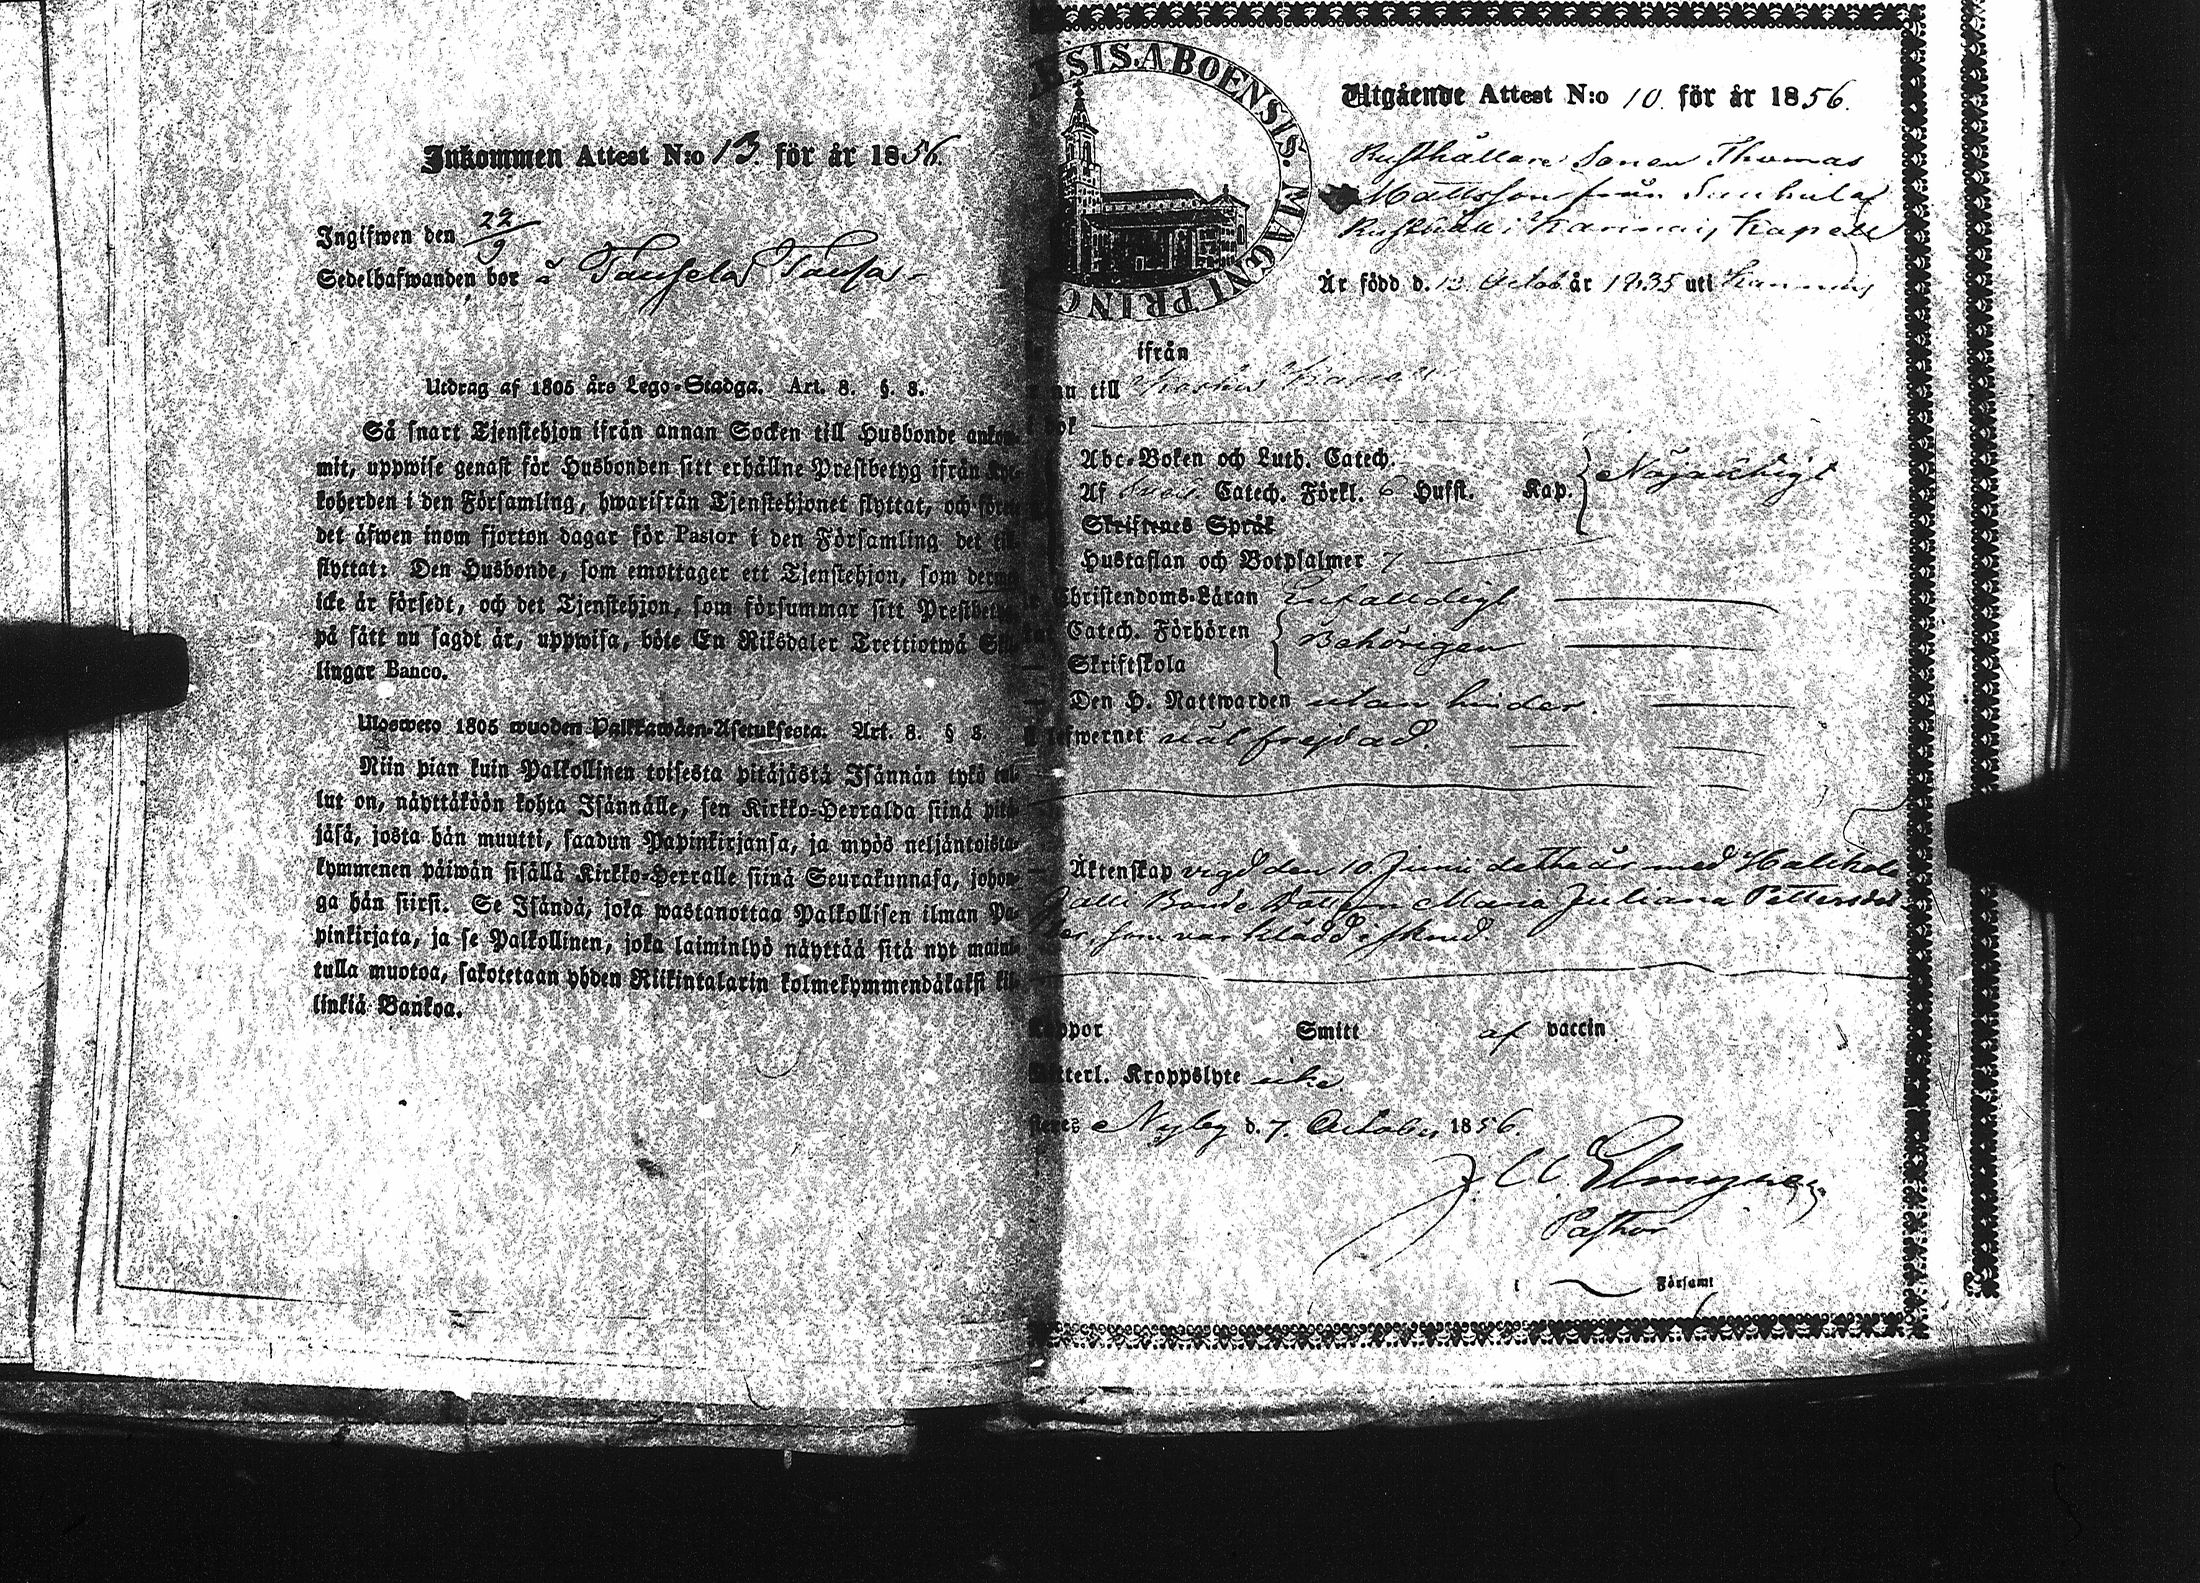 Inkommen Attest N:o 13. för år 1856.
Ingifwen den 22/9
Sedelhafwanden bor å
Utdrag af 1805 års Lego-Stadga. Art. 8. §. 8.
Så snart Tjenstehjon ifrån annan Socken till Husbonde ankom-
mit, uppwise genast för Husbonden sitt erhållne Prestbetyg ifrån
koherden i den Församling, hwarifrån Tjenstehjonet flyttat, och
det äfwen inom fjorton dagar för Pastor i den Församling det
flyttat: Den Husbonde, som emottager ett Tjenstehjon, som
icke är försedt, och det Tjenstehjon, som försummar sitt Prestbetyg
på sätt nu sagdt är, uppwisa, böte En Riksdaler Trettiotwå
lingar Banco.
Ulosweto 1805 wuoden Palkkawäen-Asetuksesta. Art. 8. § 8.
Niin pian kuin Palkollinen toisesta pitäjästä Isännän tykö tul-
lut on, näyttäköön kohta Isännälle, sen Kirkko-Herralda siinä pitä-
jäsä, josta hän muutti, saadun Papinkirjansa, ja myös neljäntoista-
kymmenen päiwän sisällä Kirkko-Herralle siinä Seurakunnasa, johon-
ga hän siirsi. Se Isändä, joka wastanottaa Palkollisen ilman Pa-
pinkirjata, ja se Palkollinen, joka laiminlyö näyttää sitä nyt maini-
tulla muotoa, sakotetaan yhden Riikintalarin kolmekymmendäkaksi kil-
linkiä Bankoa.
SIS. ABOENSIS. MAGNI PRINC
Utgående Attest N:o 10. för år 1856.
Rusthållare Sonen Thomas
Mattsson från
Rusthåll i Karuna Kapell
Är född d. 13 Octob år 1835 uti Karuna
ifrån
nu till
bok
Abc-Boken och Luth. Catech.
Af Sveb. Catech. Förkl. 6 Hufst. Kap. Nöjaktigt
Skriftenes Språk
Hustaflan och Botpsalmer 7
Christendoms-Läran Enfalldigt
Catech. Förhören Behörigen
Skriftskola
Den H. Nattwarden utan hinder.
Lefwernet väl frejdad.
Äktenskap vigd den 10 Junii detta år med
Bonde Dottern Maria Juliana Pettersdot
ter, som var klädd i skrud.
koppor Smitt af vaccin
terl. Kroppslyte icke
Nyby d. 7. October 1856.
Elmgren
Pastor
i Församl